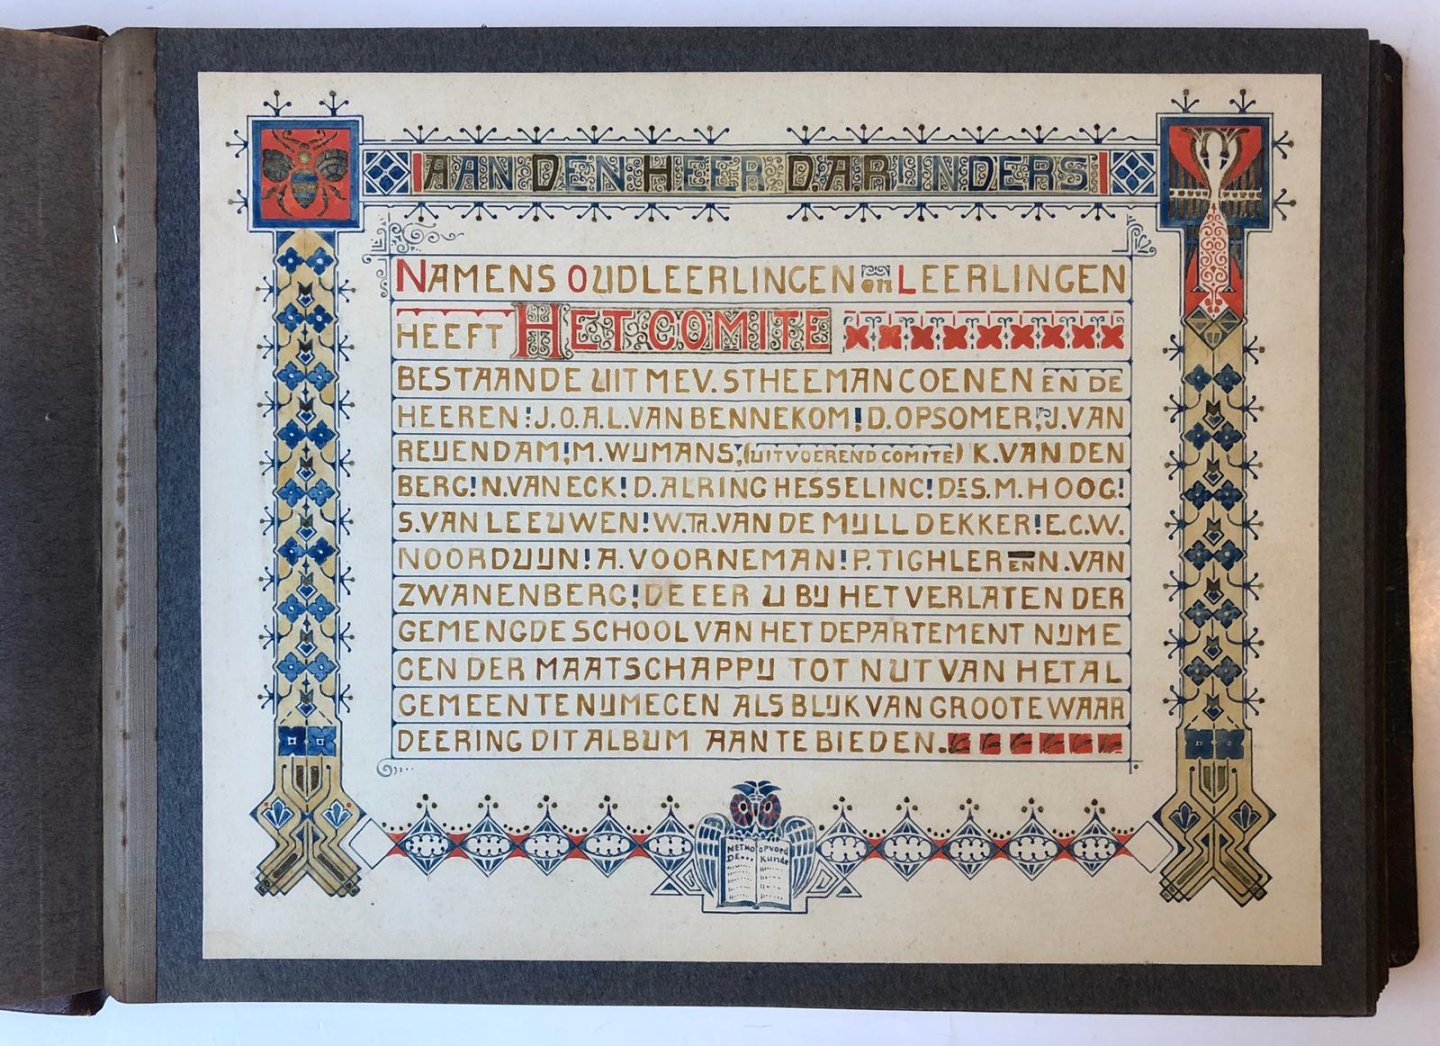 AAN DEN HEER D.A.R. IJNDERS
NAMENS OUDLEERLINGEN en LEERLINGEN
HEEFT HET COMITE
BESTAANDE UIT MEV. STHEEMAN COENEN EN DE
HEEREN! J.O.A.L. VAN BENNEKOM! D. OPSOMER, J. VAN
REIJENDAM! M. WIJMANS, (UITVOEREND COMITE) K. VAN DEN
BERG! N. VAN ECK! D. ALRING HESSELING! DES. M. HOOG!
S. VAN LEEUWEN! W.TH. VAN DE MIJLL DEKKER! E.C.W.
NOORDUIJN! A. VOORNEMAN! P. TIGHLER EN N. VAN
ZWANENBERG! DE EER U BIJ HET VERLATEN DER
GEMENGDE SCHOOL VAN HET DEPARTEMENT NIJME
GEN DER MAATSCHAPPIJ TOT NUT VAN HET AL
GEMEEN TE NIJMEGEN ALS BLIJK VAN GROOTE WAAR
DEERING DIT ALBUM AAN TE BIEDEN.
METHO
DE...
OPVOED
Kunde